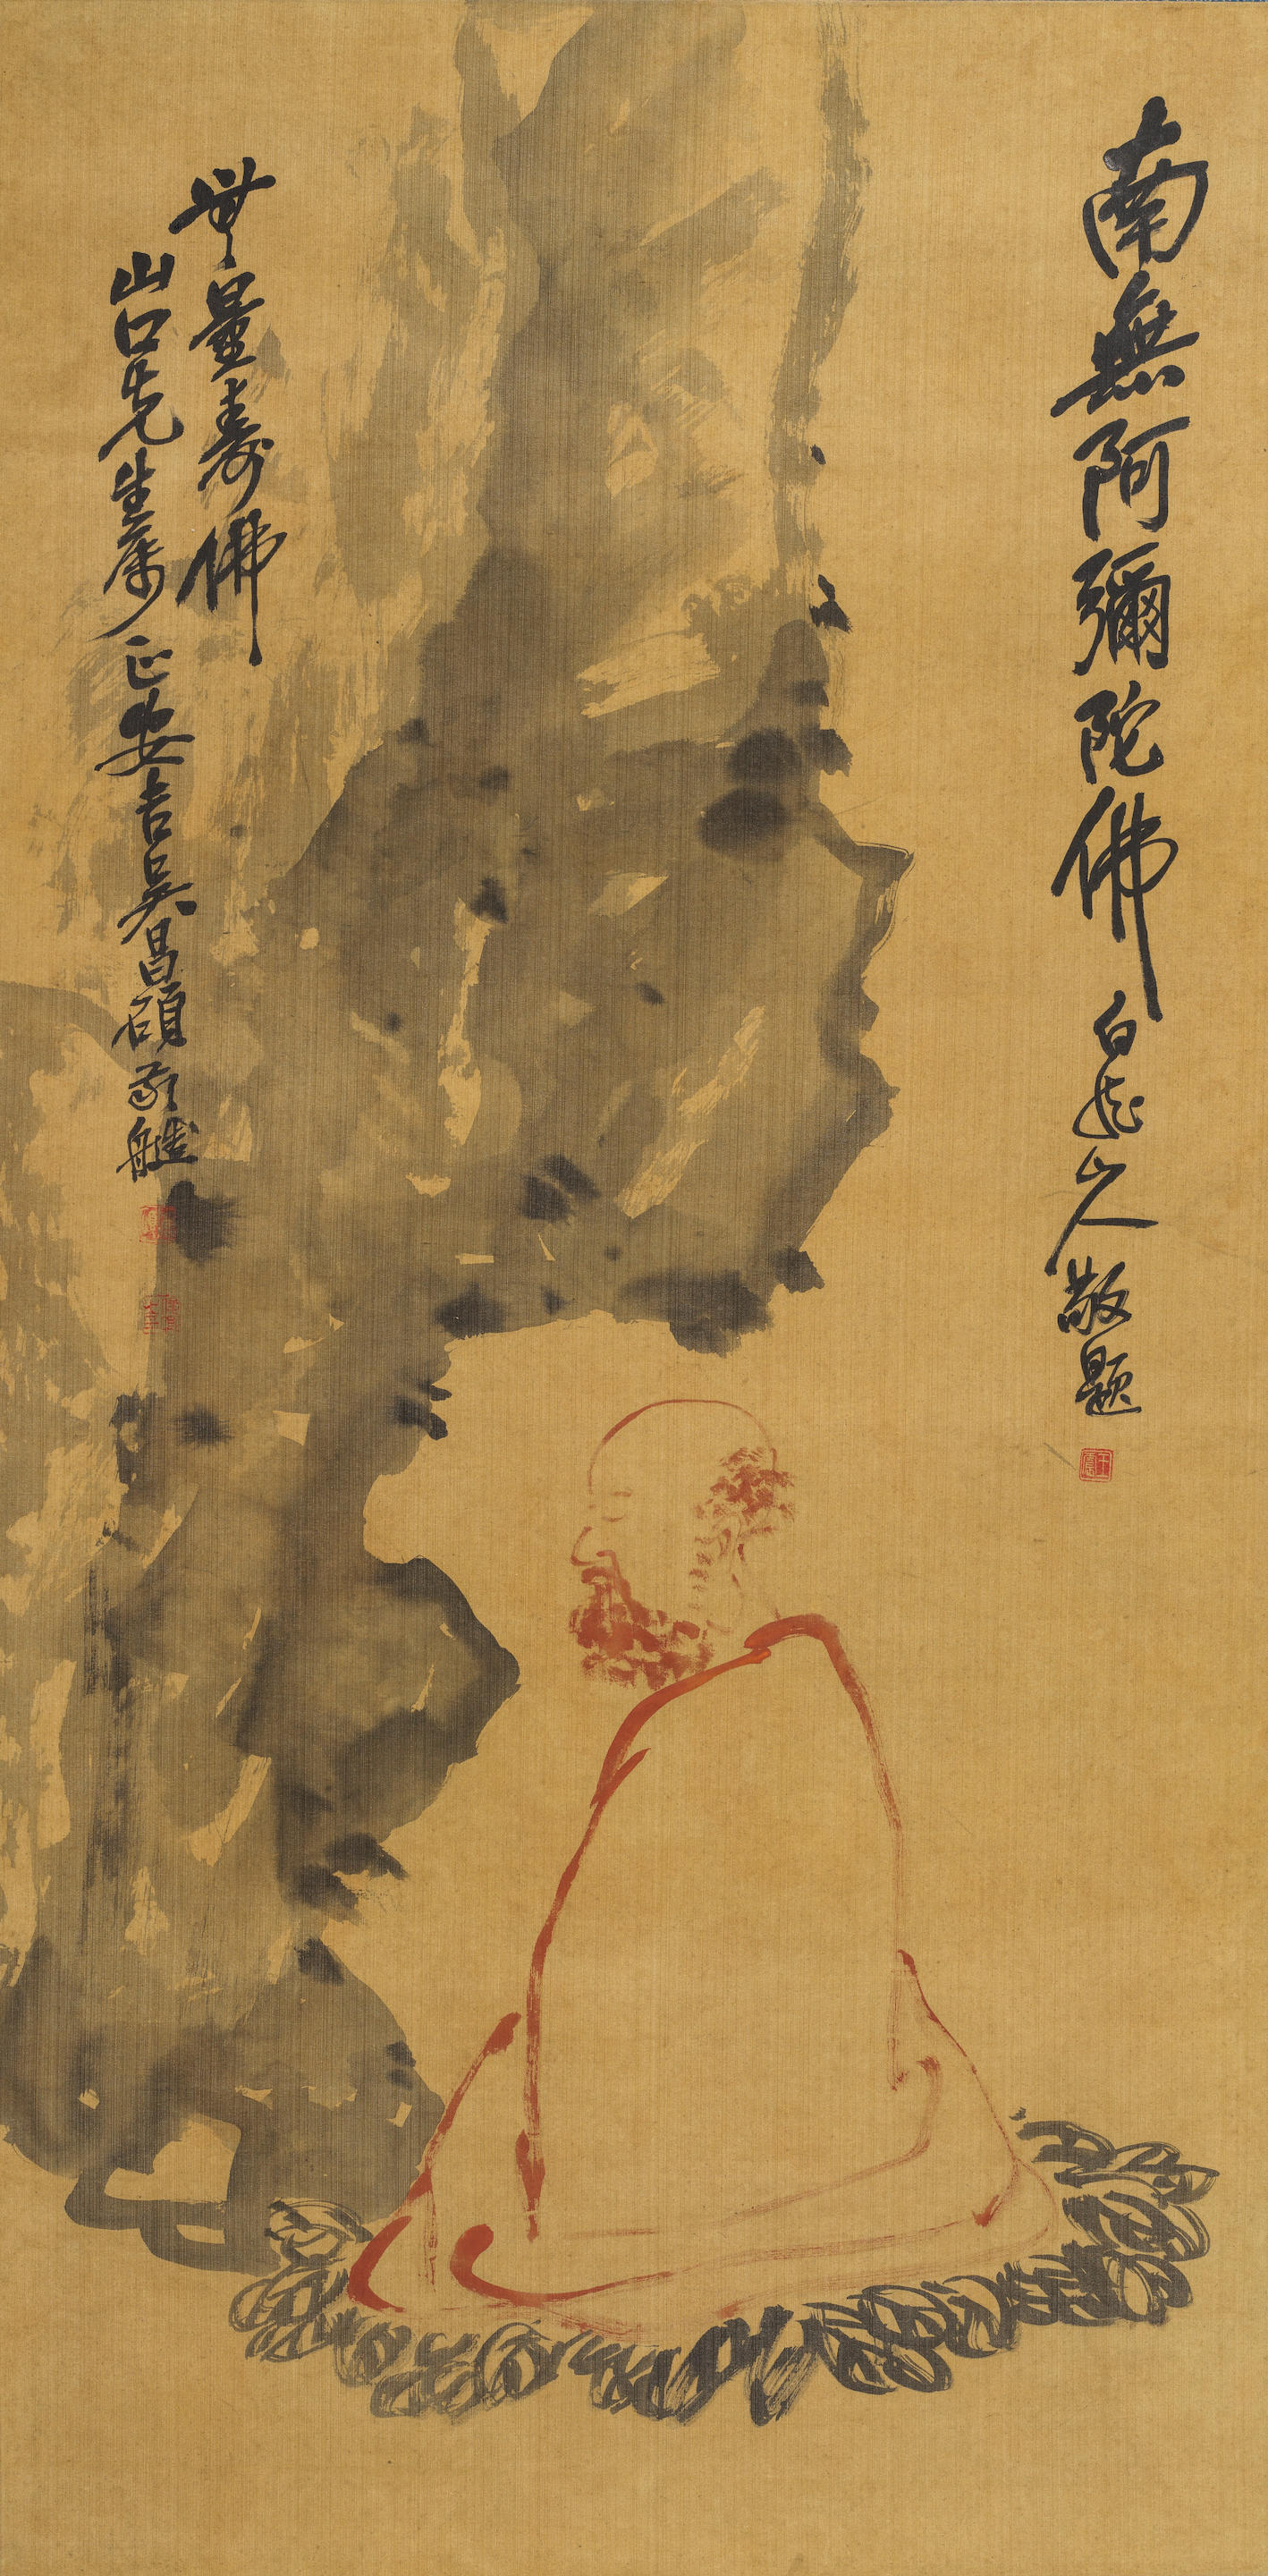 南無阿彌陀佛
白龍山人敬題
無量壽佛
山口先生属正安吉吳昌碩敬造